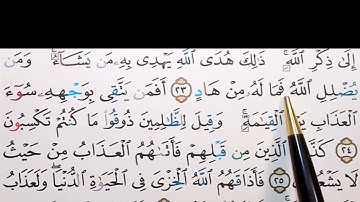 إِلَىٰ ذِكْرِ ٱللَّهِۚ ذَٰلِكَ هُدَى ٱللَّهِ يَهْدِى بِهِۦ مَن يَشَآءُۚ وَمَن
يُضْلِلِ ٱللَّهُ فَمَا لَهُۥ مِنْ هَادٍ ٢٣ أَفَمَن يَتَّقِى بِوَجْهِهِۦ سُوٓءَ
ٱلْعَذَابِ يَوْمَ ٱلْقِيَٰمَةِۚ وَقِيلَ لِلظَّٰلِمِينَ ذُوقُوا۟ مَا كُنتُمْ تَكْسِبُونَ
٢٤ كَذَّبَ ٱلَّذِينَ مِن قَبْلِهِمْ فَأَتَىٰهُمُ ٱلْعَذَابُ مِنْ حَيْثُ
لَا يَشْعُرُونَ ٢٥ فَأَذَاقَهُمُ ٱللَّهُ ٱلْخِزْىَ فِى ٱلْحَيَوٰةِ ٱلدُّنْيَاۖ وَلَعَذَابُ